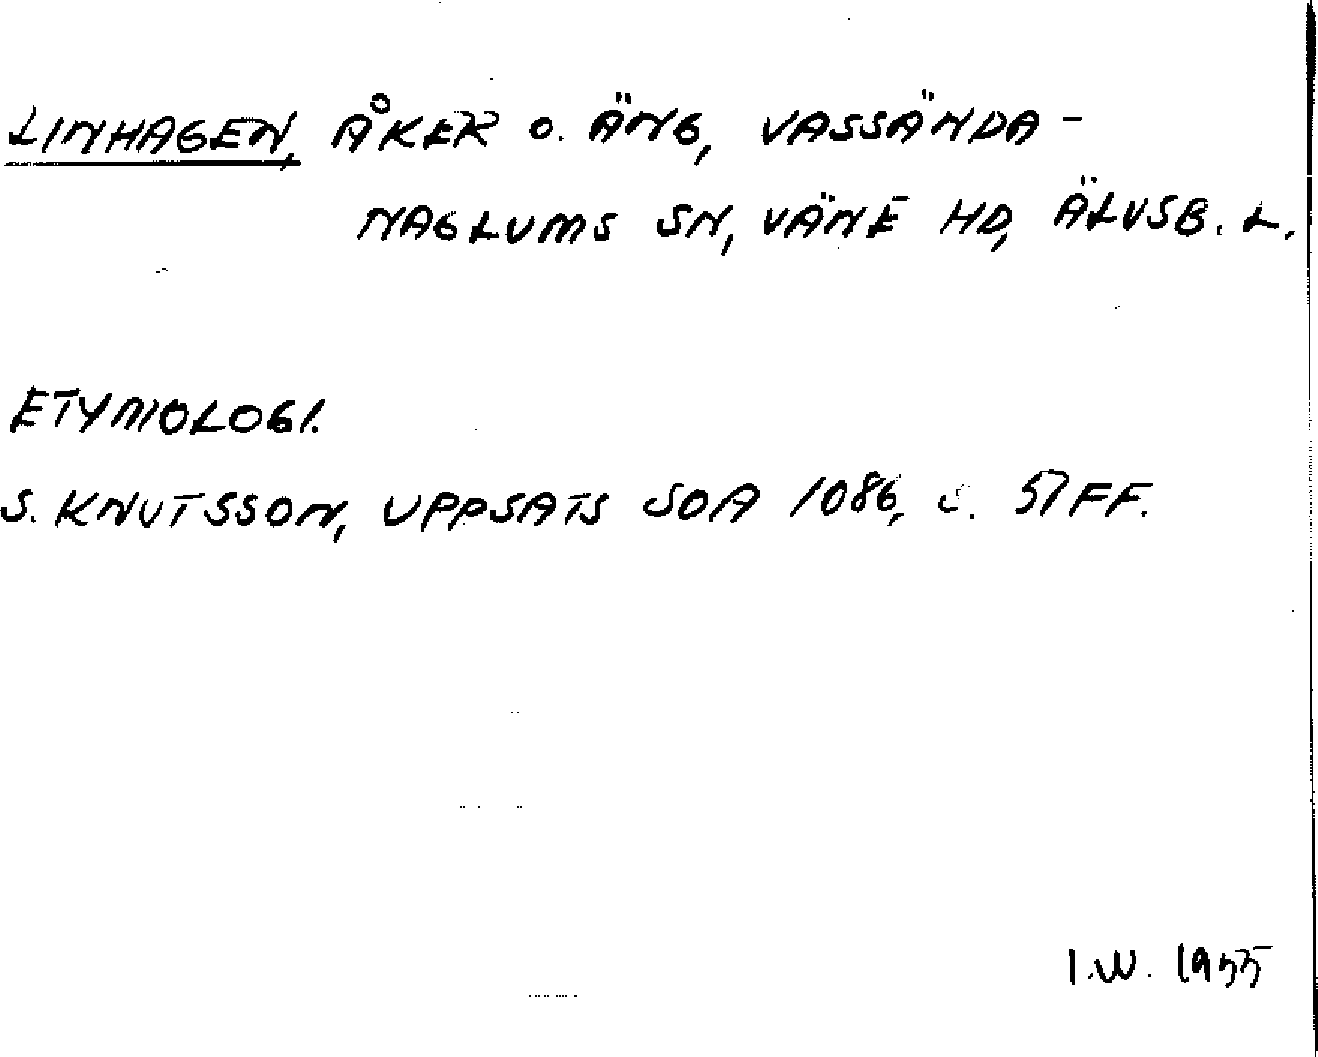 LINHAGEN, ÅKER O. ÄNG, VASSÄNDA-
NAGLUMS SN, VÄNE HD, ÄLVSB. L.
ETYMOLOGI.
S. KNUTSSON, UPPSATS SOA 1086, S. 57FF.
I.W. 1955